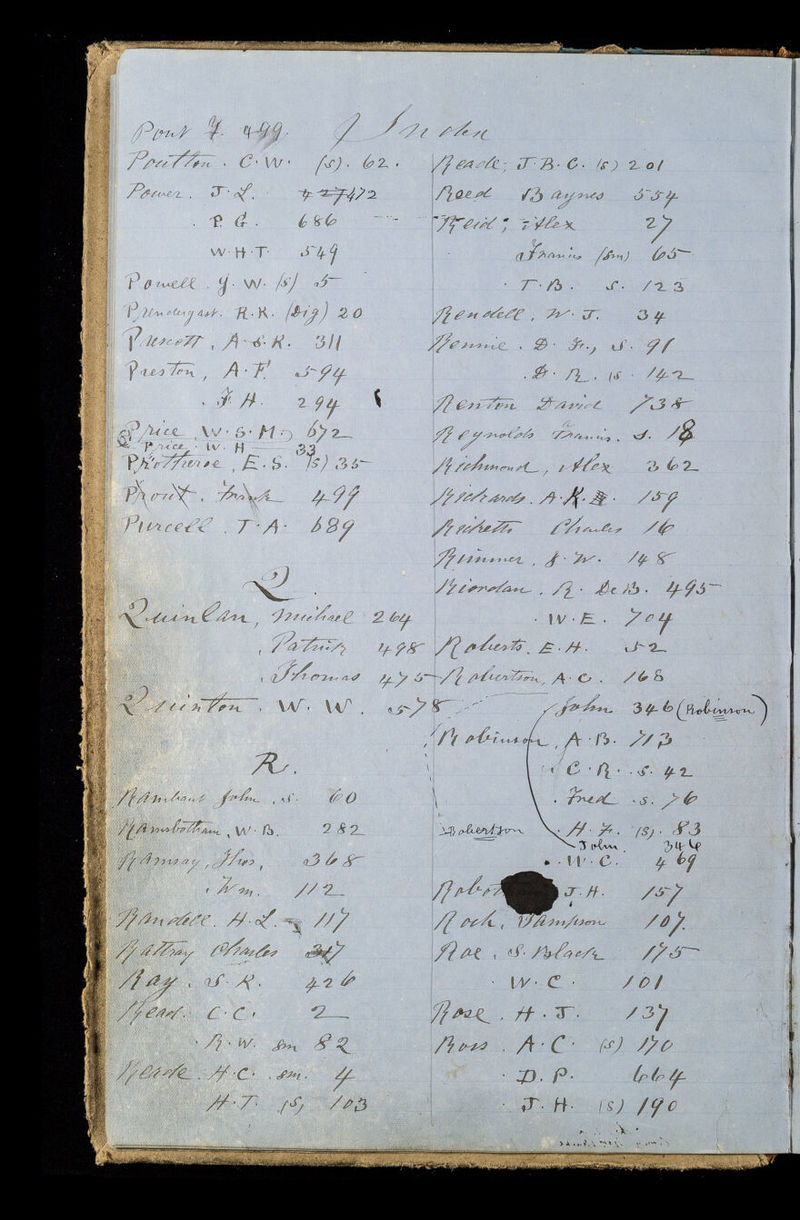 Pout F. 499. Index
Poutton. C.W. (s). 62.
Power. J.L. 427 472
P.G. 686
W.H.T. 549
Powell. J.W. (s) 5
Prendergast. R.K. (Dig) 20
Prescott, A.S.K. 311
Preston, A.F. 594
F.H. 294
Price, W.S.M. 672
Price. W.H 33
Protheroe, E.S. (s) 35
Prout. Frank 499
Purcell. T.A. 689
Q.
Quinlan, Michael 264
Patrick 498
Thomas 475
Quinton. W.W. 578
R.
Rambaut John .s. 60
Ramsbotham, W.B. 282
Ramsay, Thos. 368
Wm. 112
Randell. H.L. 117
Rattray Charles 317
Ray. S.K. 426
Read. C.C. 2
R.W. sm 82
Reade. H.C. sm. 4
H.T. (s) 103
Reade, J.B.C. (s) 201
Reed Baynes 554
Reid; Alex 27
Francis (sm) 65
T.B. S. 123
Rendell. W.J. 34
Rennie. D.F., S. 91
D.R. (s. 142
Renton David 738
Reynolds Francis. S. 18
Richmond, Alex 362
Richards. A.K. 159
Ricketts Charles 16
Rimmer. J.W. 148
Riordan. R. DeB. 495
W.E. 704
Roberts. E.H. 52
Robertson, A.C. 168
John 346 (Robinson)
Robinson, A.B. 713
C.R. .S. 42
Fred .s. 76
Robertson H.F. (s). 83
John. 346
W.C. 469
J.H. 157
Rock, Sampson 107.
Roe, S. Black 175
W.C. 101
Rose. H.J. 137
Ross. A.C. (s) 170
D.P. 664
J.H. (s) 190